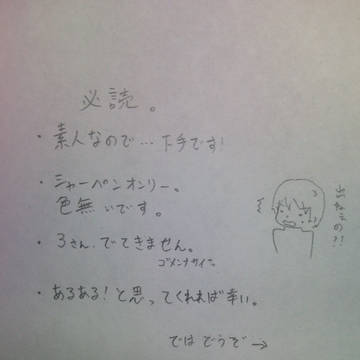 必読。
・素人なので…下手です!
・シャーペンオンリー。
色無いです。
・3さん、でてきません。
ゴメンナサイ。
・あるある!と思ってくれれば幸い。
ではどうぞ→